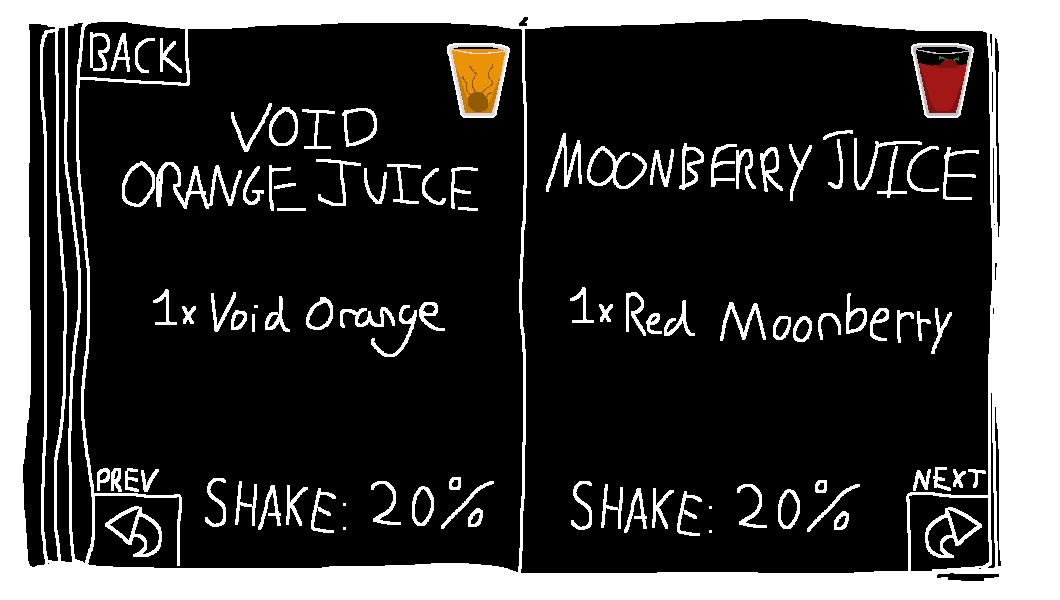 BACK
VOID
ORANGE JUICE
1x Void Orange
SHAKE: 20%
PREV
MOONBERRY JUICE
1x Red Moonberry
SHAKE: 20%
NEXT